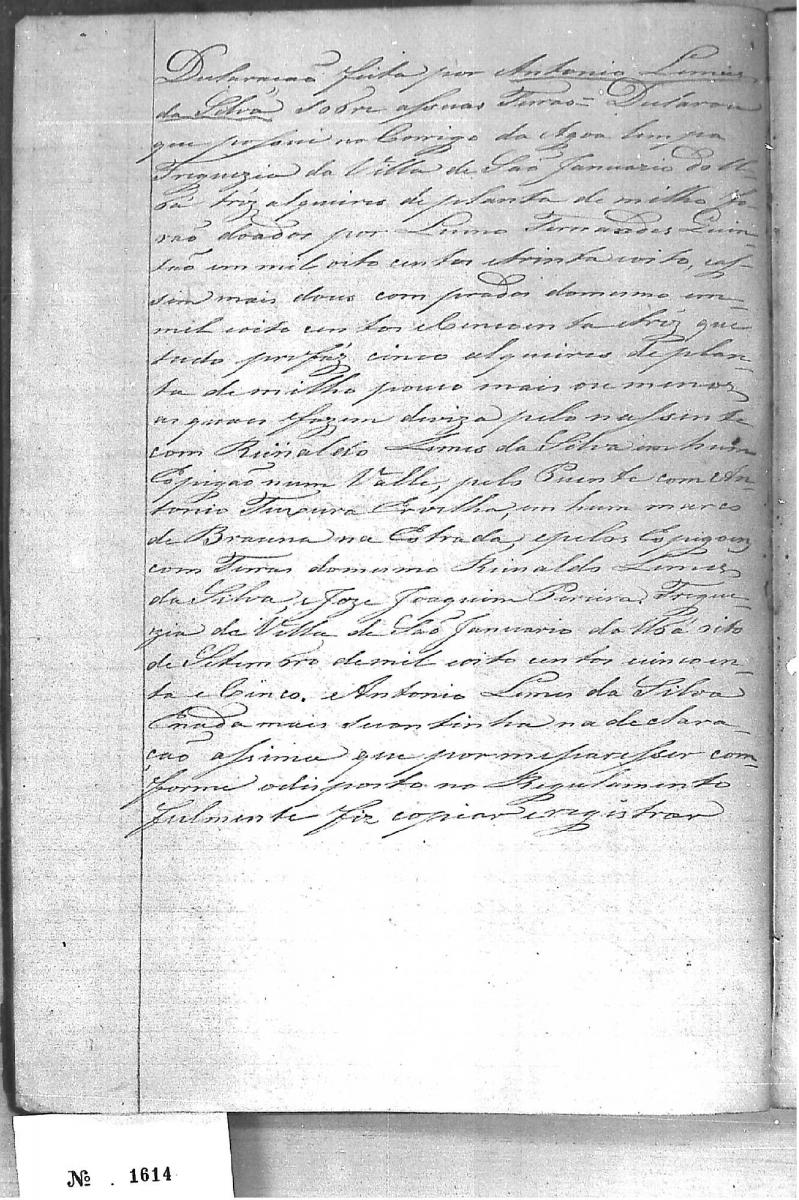 Declaração feita por Antonio Lemes
da Silva sobre assuas Terras = Declarou
que possue no Corrigo da Agoa limpa
Freguezia da Villa de São Januario do U-
bá trez alqueires de planta de milho fo-
rão doados por Lemo Fernandes Quin-
tão em mil oito centos etrinta eoito, eas-
sim mais dous com prados domesmo em
mil eoito centos eCincoenta etrêz que
tudo prefáz cinco alqueires de plan-
ta de milho pouco mais ou menos
as quaes fazem diviza pelo nassente
com Reinaldo Lemes da Silva em hum
Espigão num Valle, pelo Puente com An-
tonio Teixeira Ervilha, em hum marco
de Brauna na Estrada, epelos Espigoens
com Terras domesmo Reinaldo Lemes
da Silva, e Joze Joaquim Pereira. Fregue-
zia da Villa de São Januario do Ubá oito
de Setembro de mil eoito centos ecincoen-
ta e Cinco. eAntonio Lemes da Silva
Enada mais secontinha na declara-
ção assima que por meparesser con-
forme odisposto no Regulamento
fielmente fiz copiar eregistrar
Nº . 1614